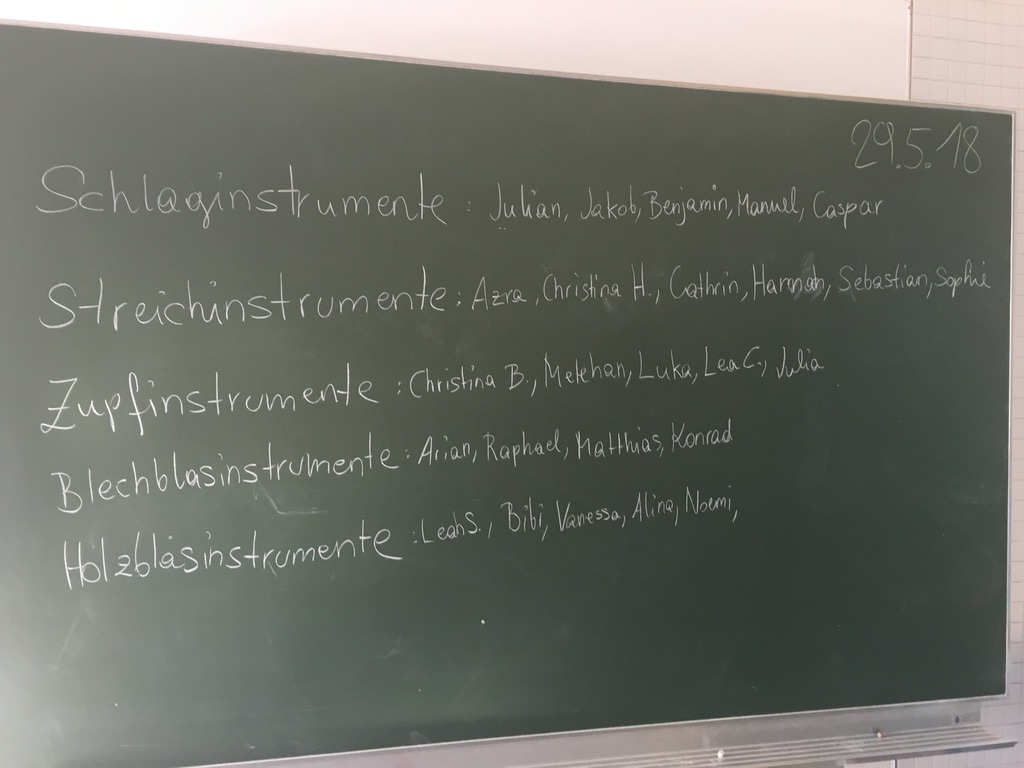 29.5.18
Schlaginstrumente: Julian, Jakob, Benjamin, Manuel, Caspar
Streichinstrumente: Azra, Christina H., Cathrin, Hannah, Sebastian, Sophie
Zupfinstrumente: Christina B., Metehan, Luka, Lea C., Julia
Blechblasinstrumente: Arian, Raphael, Matthias, Konrad
Holzblasinstrumente: Leah S., Bibi, Vanessa, Alina, Noemi,